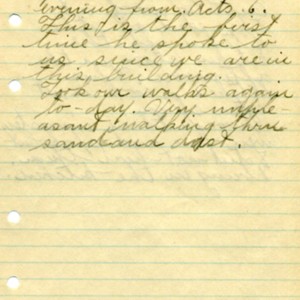 Evening from Acts. 6.
This is the first
time he spoke to
us since we are in
this building.
Took our walks again
to-day. Very unple-
asant walking thru
sand and dust.